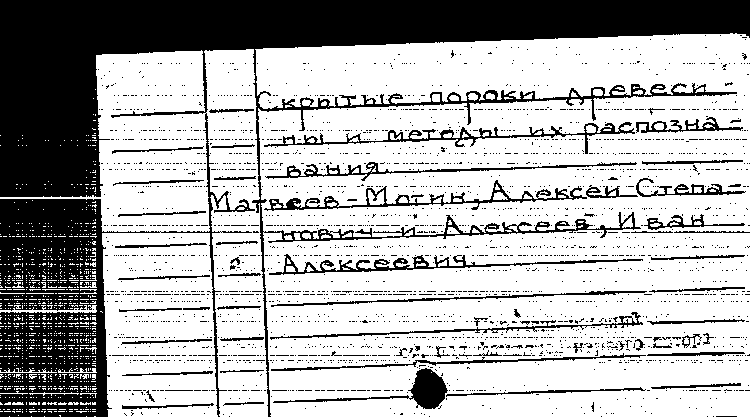 Скрытые пороки древеси-
ны и методы их распозна-
вания.
Матвеев-Мотин, Алексей Степа-
нович и Алексеев, Иван
2 Алексеевич.
первого автора